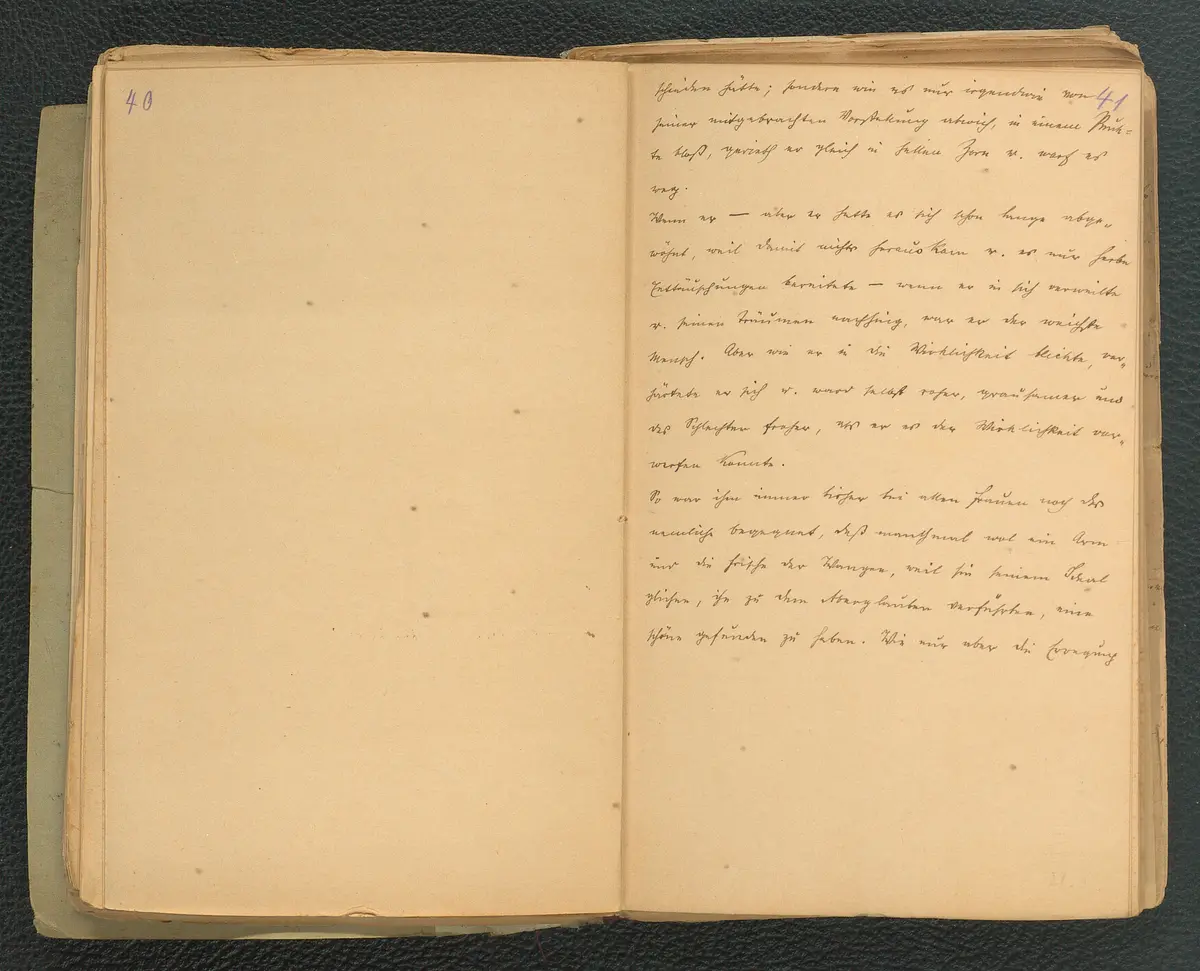 40
41
schieden hätte; sondern wie es nur irgendwie von
seiner mitgebrachten Vorstellung abwich, in einem Punk-
te bloß, gerieth er gleich in hellen Zorn u. warf es
weg.
Wenn er — aber er hatte es sich schon lange abge-
wöhnt, weil damit nichts herauskam u. es nur herbe
Enttäuschungen bereitete — wenn er in sich verweilte
u. seinen Träumen nachhing, war er der weichste
Mensch. Aber wie er in die Wirklichkeit blickte, ver-
härtete er sich u. ward selbst roher, grausamer und
des Schlechten froher, als er es der Wirklichkeit vor-
werfen konnte.
So war ihm immer bisher bei allen Frauen noch das
nemliche begegnet, daß manchmal wol ein Arm
und die Frische der Wangen, weil sie seinem Ideal
glichen, ihn zu dem Aberglauben verführten, eine
schöne gefunden zu haben. Wie nur aber die Erregung